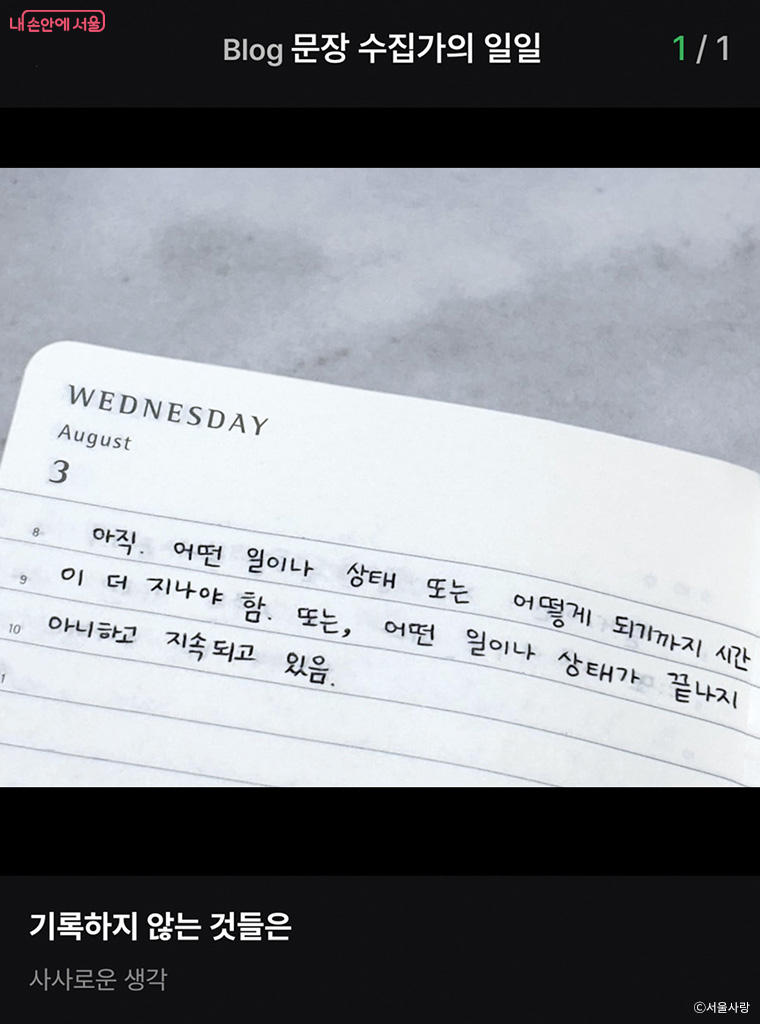 내 손안에 서울
Blog 문장 수집가의 일일
1 / 1
WEDNESDAY
August
3
8 아직. 어떤 일이나 상태 또는 어떻게 되기까지 시간
9 이 더 지나야 함. 또는, 어떤 일이나 상태가 끝나지
10 아니하고 지속되고 있음.
1
기록하지 않는 것들은
사사로운 생각
©서울사랑